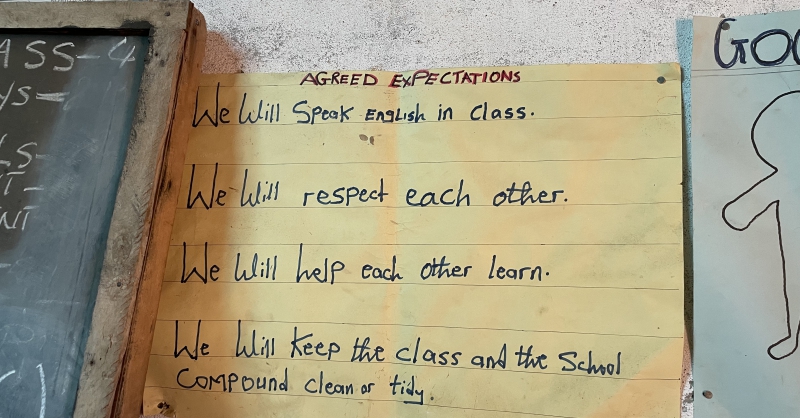 ASS-4
YS-
LS-
NT
AGREED EXPECTATIONS
We Will Speak ENGLish in Class.
We Will respect each other.
We Will help each other learn.
We Will Keep the class and the School
COMPOUND clean or tidy.
GOO